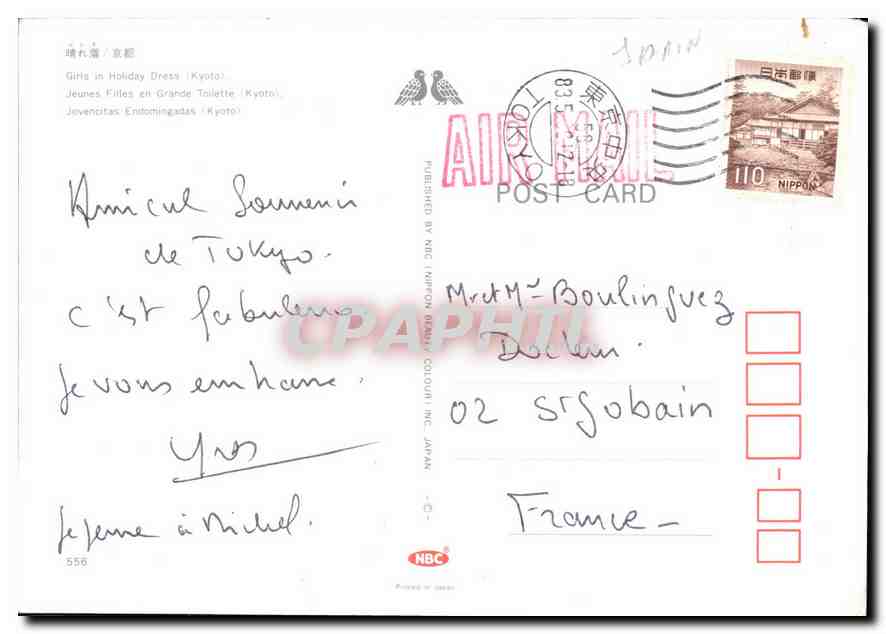 晴れ着/京都
Girls in Holiday Dress (Kyoto).
Jeunes Filles en Grande Toilette (Kyoto),
Jovencitas Endomingadas (Kyoto)
Amical Souvenir
de Tokyo.
c'est fabuleux
je vous embrasse.
Yves
Je pense à Michel.
556
PUBLISHED BY NBC (NIPPON BEAUTY COLOUR) INC. JAPAN
NBC
Printed in Japan
AIR MAIL
POST CARD
東京中央
TOKYO
日本郵便
110 NIPPON
Mr et Me Boulinguez
Docteur.
02 St Gobain
France
CPAPHIL